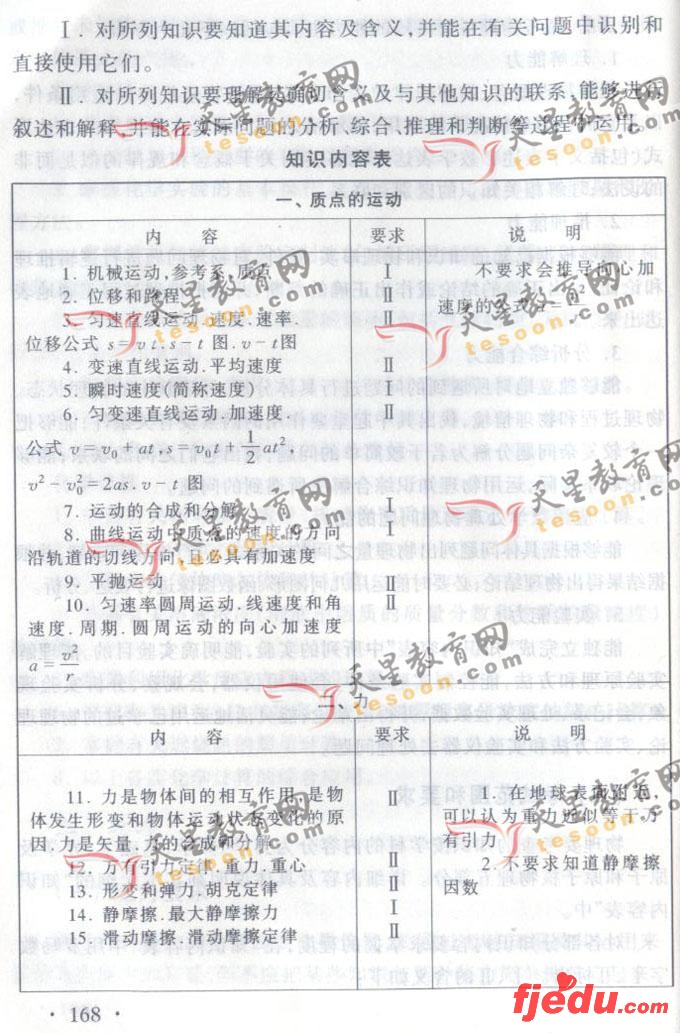 Ⅰ. 对所列知识要知道其内容及含义,并能在有关问题中识别和
直接使用它们。
Ⅱ. 对所列知识要理解其确切含义及与其他知识的联系,能够进行
叙述和解释,并能在实际问题的分析、综合、推理和判断等过程中运用。
知识内容表
一、质点的运动
内 容 要求 说 明
1. 机械运动,参考系,质点 Ⅰ 不要求会推导向心加
2. 位移和路程 Ⅱ 速度的公式
3. 匀速直线运动.速度.速率. Ⅱ
位移公式 s=vt.s-t 图.v-t图
4. 变速直线运动.平均速度 Ⅱ
5. 瞬时速度(简称速度) Ⅰ
6. 匀变速直线运动.加速度. Ⅱ
公式 v=v₀+at,s=v₀t+½at²,
v²-v₀²=2as.v-t 图
7. 运动的合成和分解
8. 曲线运动中质点的速度的方向 Ⅰ
沿轨道的切线方向,且必具有加速度
9. 平抛运动 Ⅱ
10. 匀速率圆周运动.线速度和角 Ⅱ
速度.周期.圆周运动的向心加速度
a=v²/r
二、
内 容 要求 说 明
11. 力是物体间的相互作用,是物 Ⅱ 1. 在地球表面附近,
体发生形变和物体运动状态变化的原 可以认为重力近似等于万
因.力是矢量.力的合成和分解 有引力
12. 万有引力定律.重力.重心 Ⅱ 2.不要求知道静摩擦
13. 形变和弹力.胡克定律 Ⅱ 因数
14. 静摩擦.最大静摩擦力 Ⅰ
15. 滑动摩擦.滑动摩擦定律 Ⅱ
· 168 ·
天星教育网
tesoon.com
fjedu.com